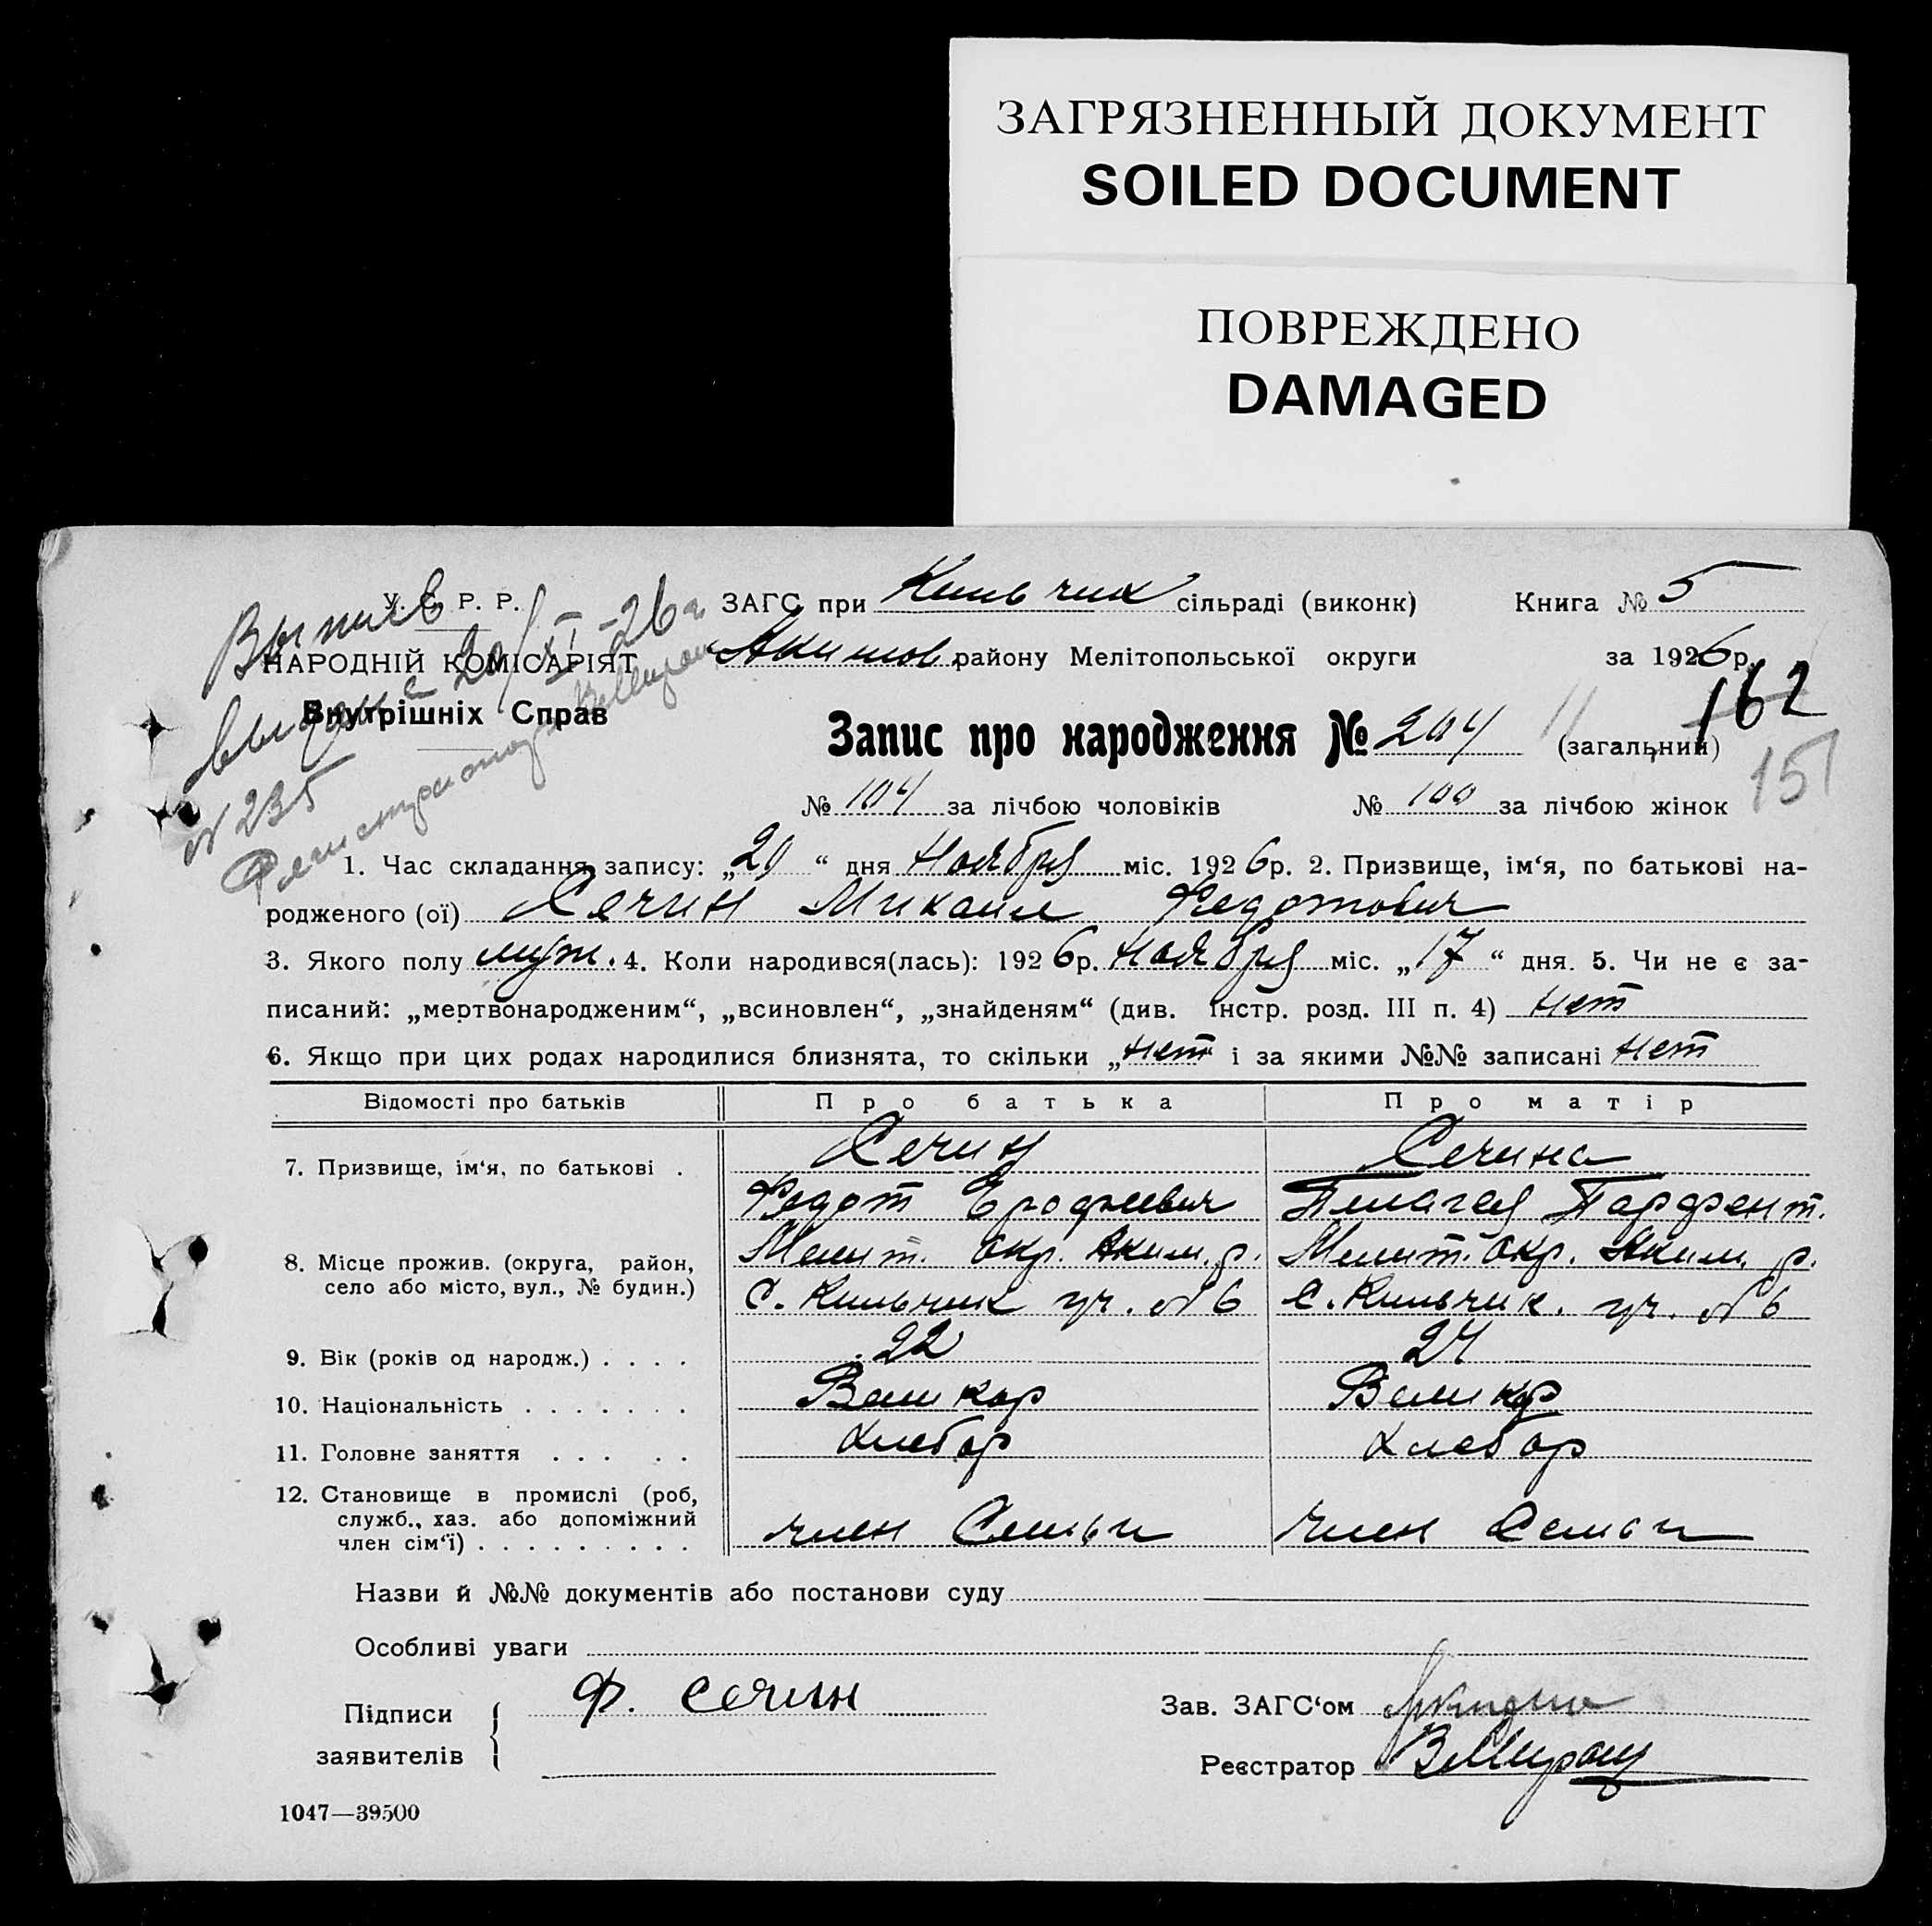 ЗАГРЯЗНЕННЫЙ ДОКУМЕНТ
SOILED DOCUMENT
ПОВРЕЖДЕНО
DAMAGED
У. С. Р. Р.
НАРОДНІЙ КОМІСАРІЯТ
Внутрішніх Справ
Выпись
выдана 20/XI-26 г
N 235
Регистратор
ЗАГС при Кильчик сільраді (виконк) Книга № 5
Акимов. району Мелітопольської округи за 1926 р.
162
Запис про народження № 204 (загальний)
151
№ 104 за лічбою чоловіків № 100 за лічбою жінок
1. Час складання запису: „20“ дня Ноября міс. 1926 р. 2. Призвище, ім‘я, по батькові на-
родженого (ої) Сечин Михаил Федотович
3. Якого полу муж. 4. Коли народився(лась): 1926 р. Ноября міс. „17“ дня. 5. Чи не є за-
писаний: „мертвонародженим“, „всиновлен“, „знайденям“ (див. Інстр. розд. III п. 4) нет
6. Якщо при цих родах народилися близнята, то скільки „нет і за якими №№ записані нет
Відомості про батьків Про батька Про матір
7. Призвище, ім‘я, по батькові . Сечин Сечина
Федот Ерофеевич Пелагея Парфент.
8. Місце прожив. (округа, район, село або місто, вул., № будин.) Мелит. окр. Аким. р. Мелит. окр. Аким. р.
с. Кильчик уч. N 6 с. Кильчик. уч. N 6
9. Вік (років од народж.) . . . . 22 24
10. Національність . . . . . . . Великор Великор
11. Головне заняття . . . . . Хлебор Хлебор
12. Становище в промислі (роб,
служб., хаз. або допоміжний
член сім‘ї) . . . . . . . . . член Семьи член Семьи
Назви й №№ документів або постанови суду
Особливі уваги
Підписи заявителів Ф. Сечин
Зав. ЗАГС‘ом
Реєстратор
1047—39500